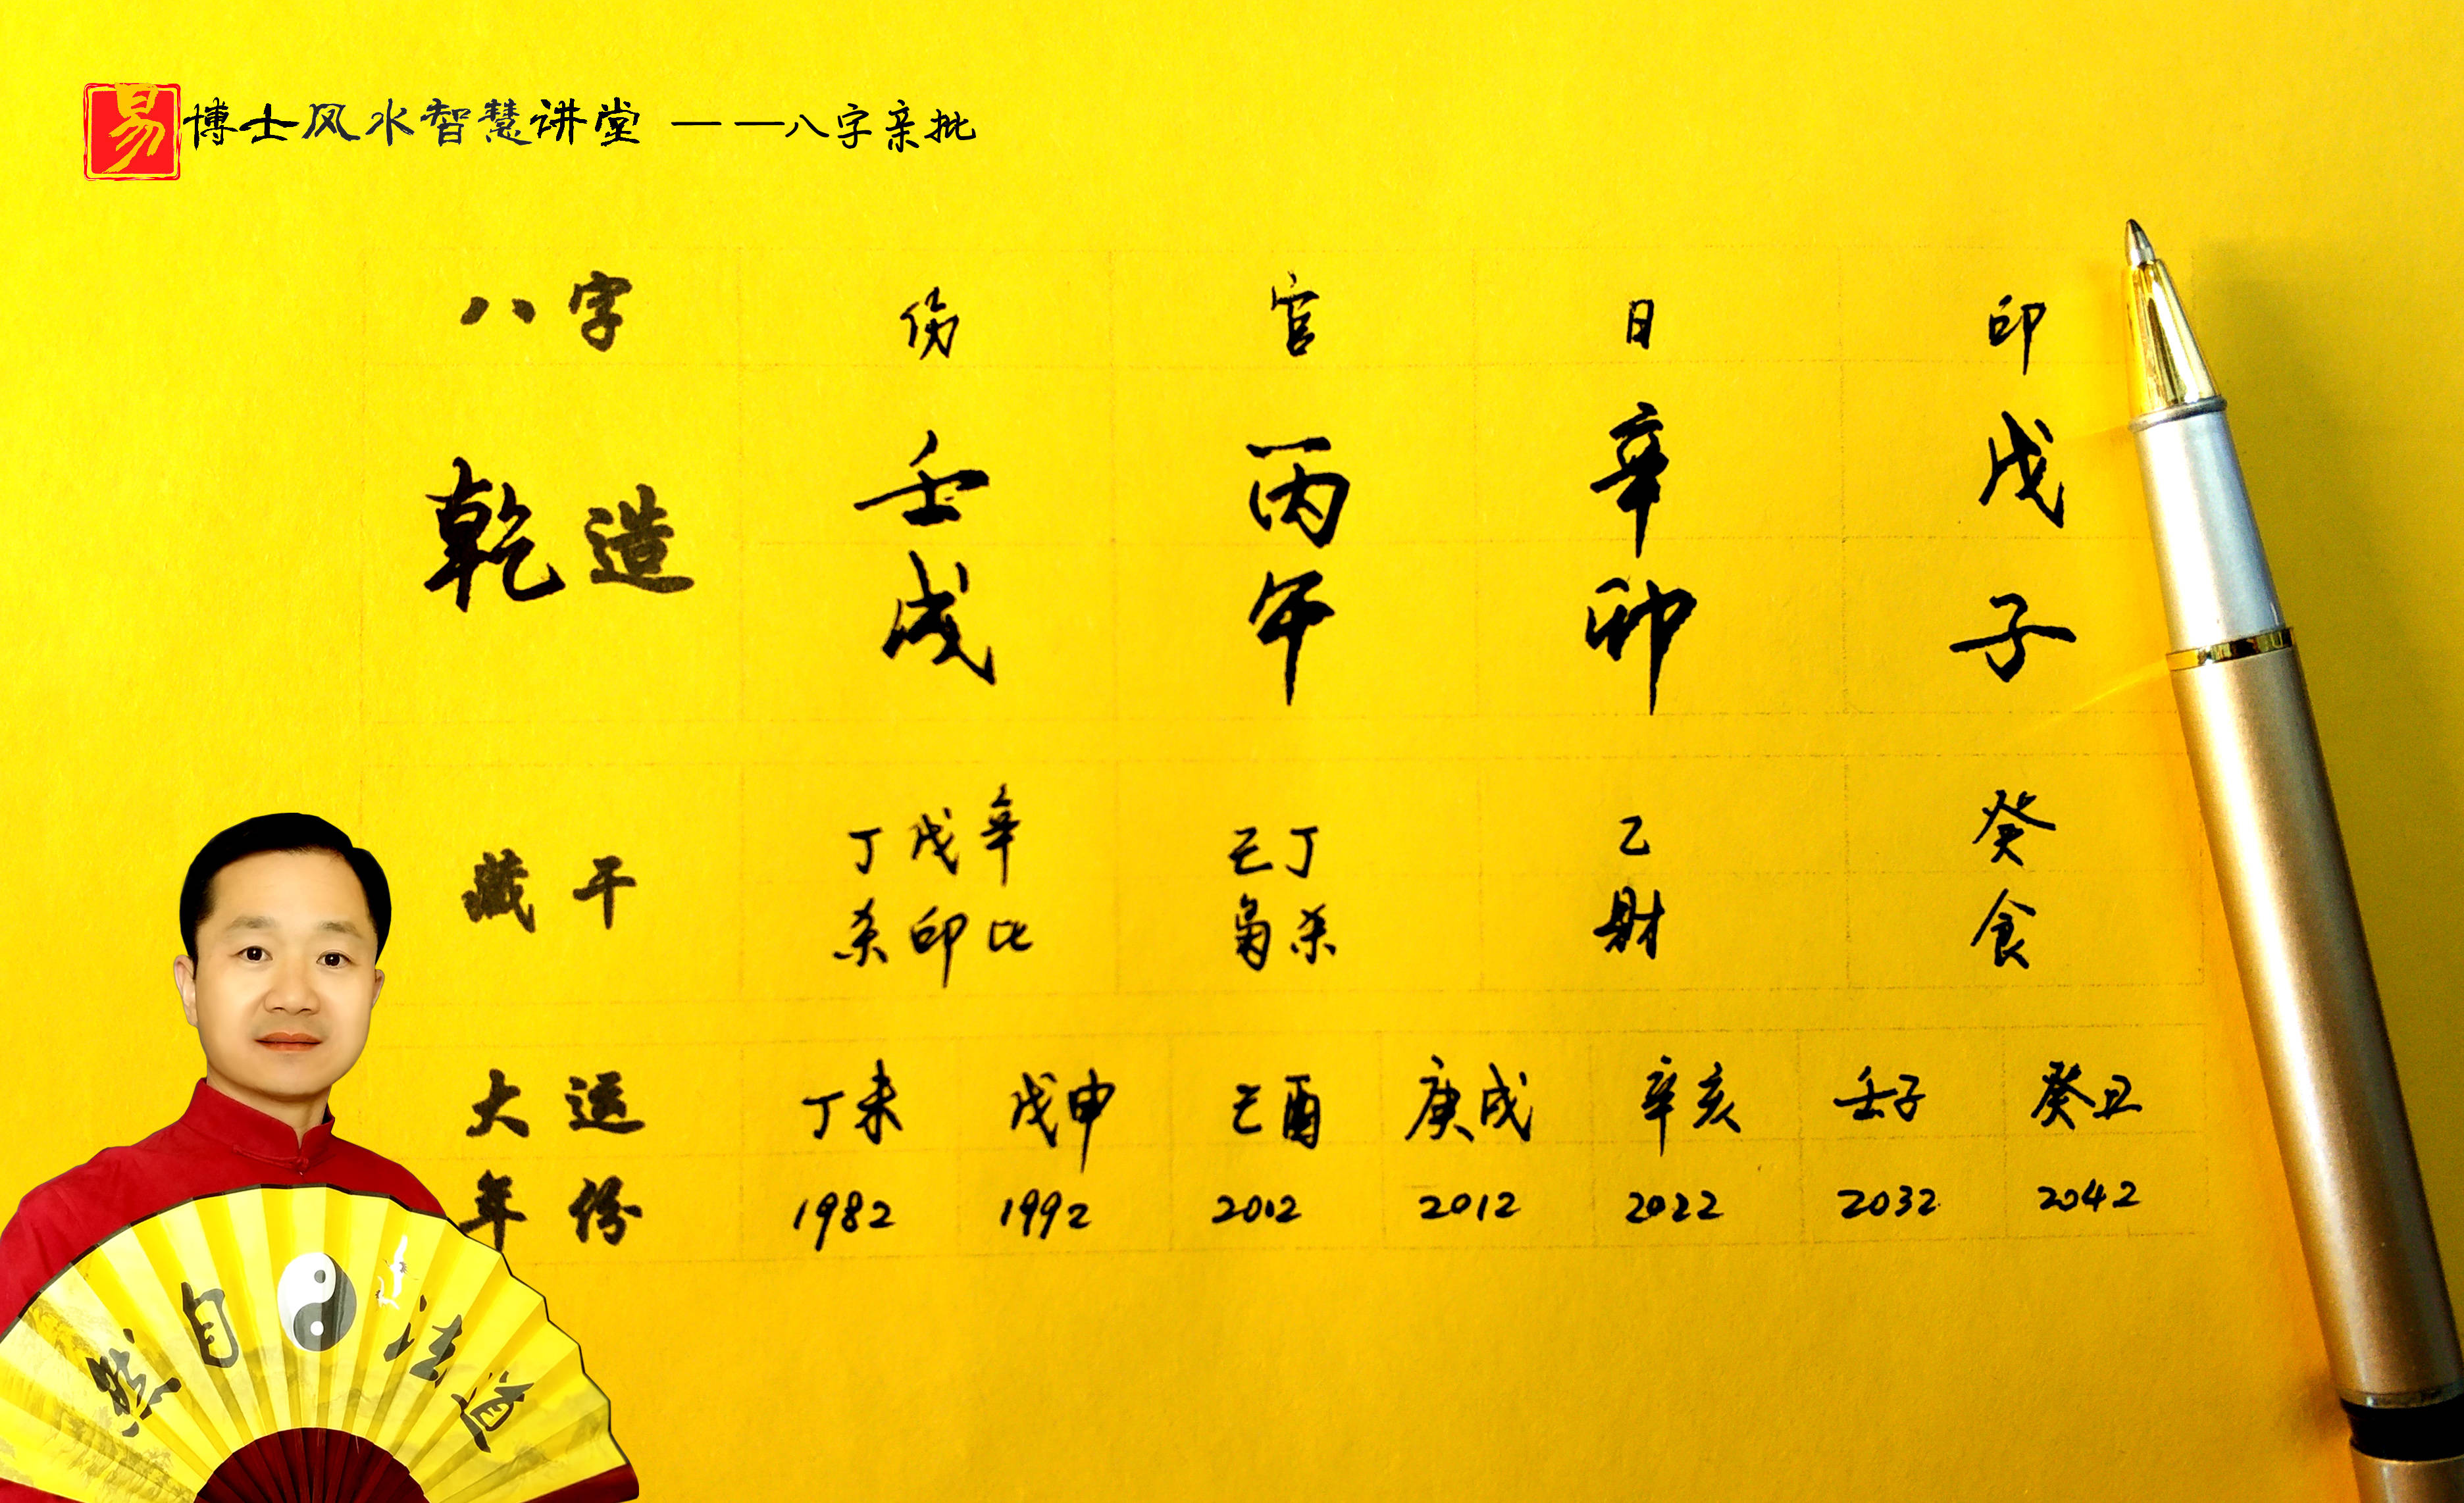 易博士风水智慧讲堂 ——八字亲批
八字 伤 官 日 印
乾造 壬 丙 辛 戊
戌 午 卯 子
藏干 丁戊辛 己丁 乙 癸
杀印比 枭杀 财 食
大运 丁未 戊申 己酉 庚戌 辛亥 壬子 癸丑
年份 1982 1992 2012 2012 2022 2032 2042
然自法道